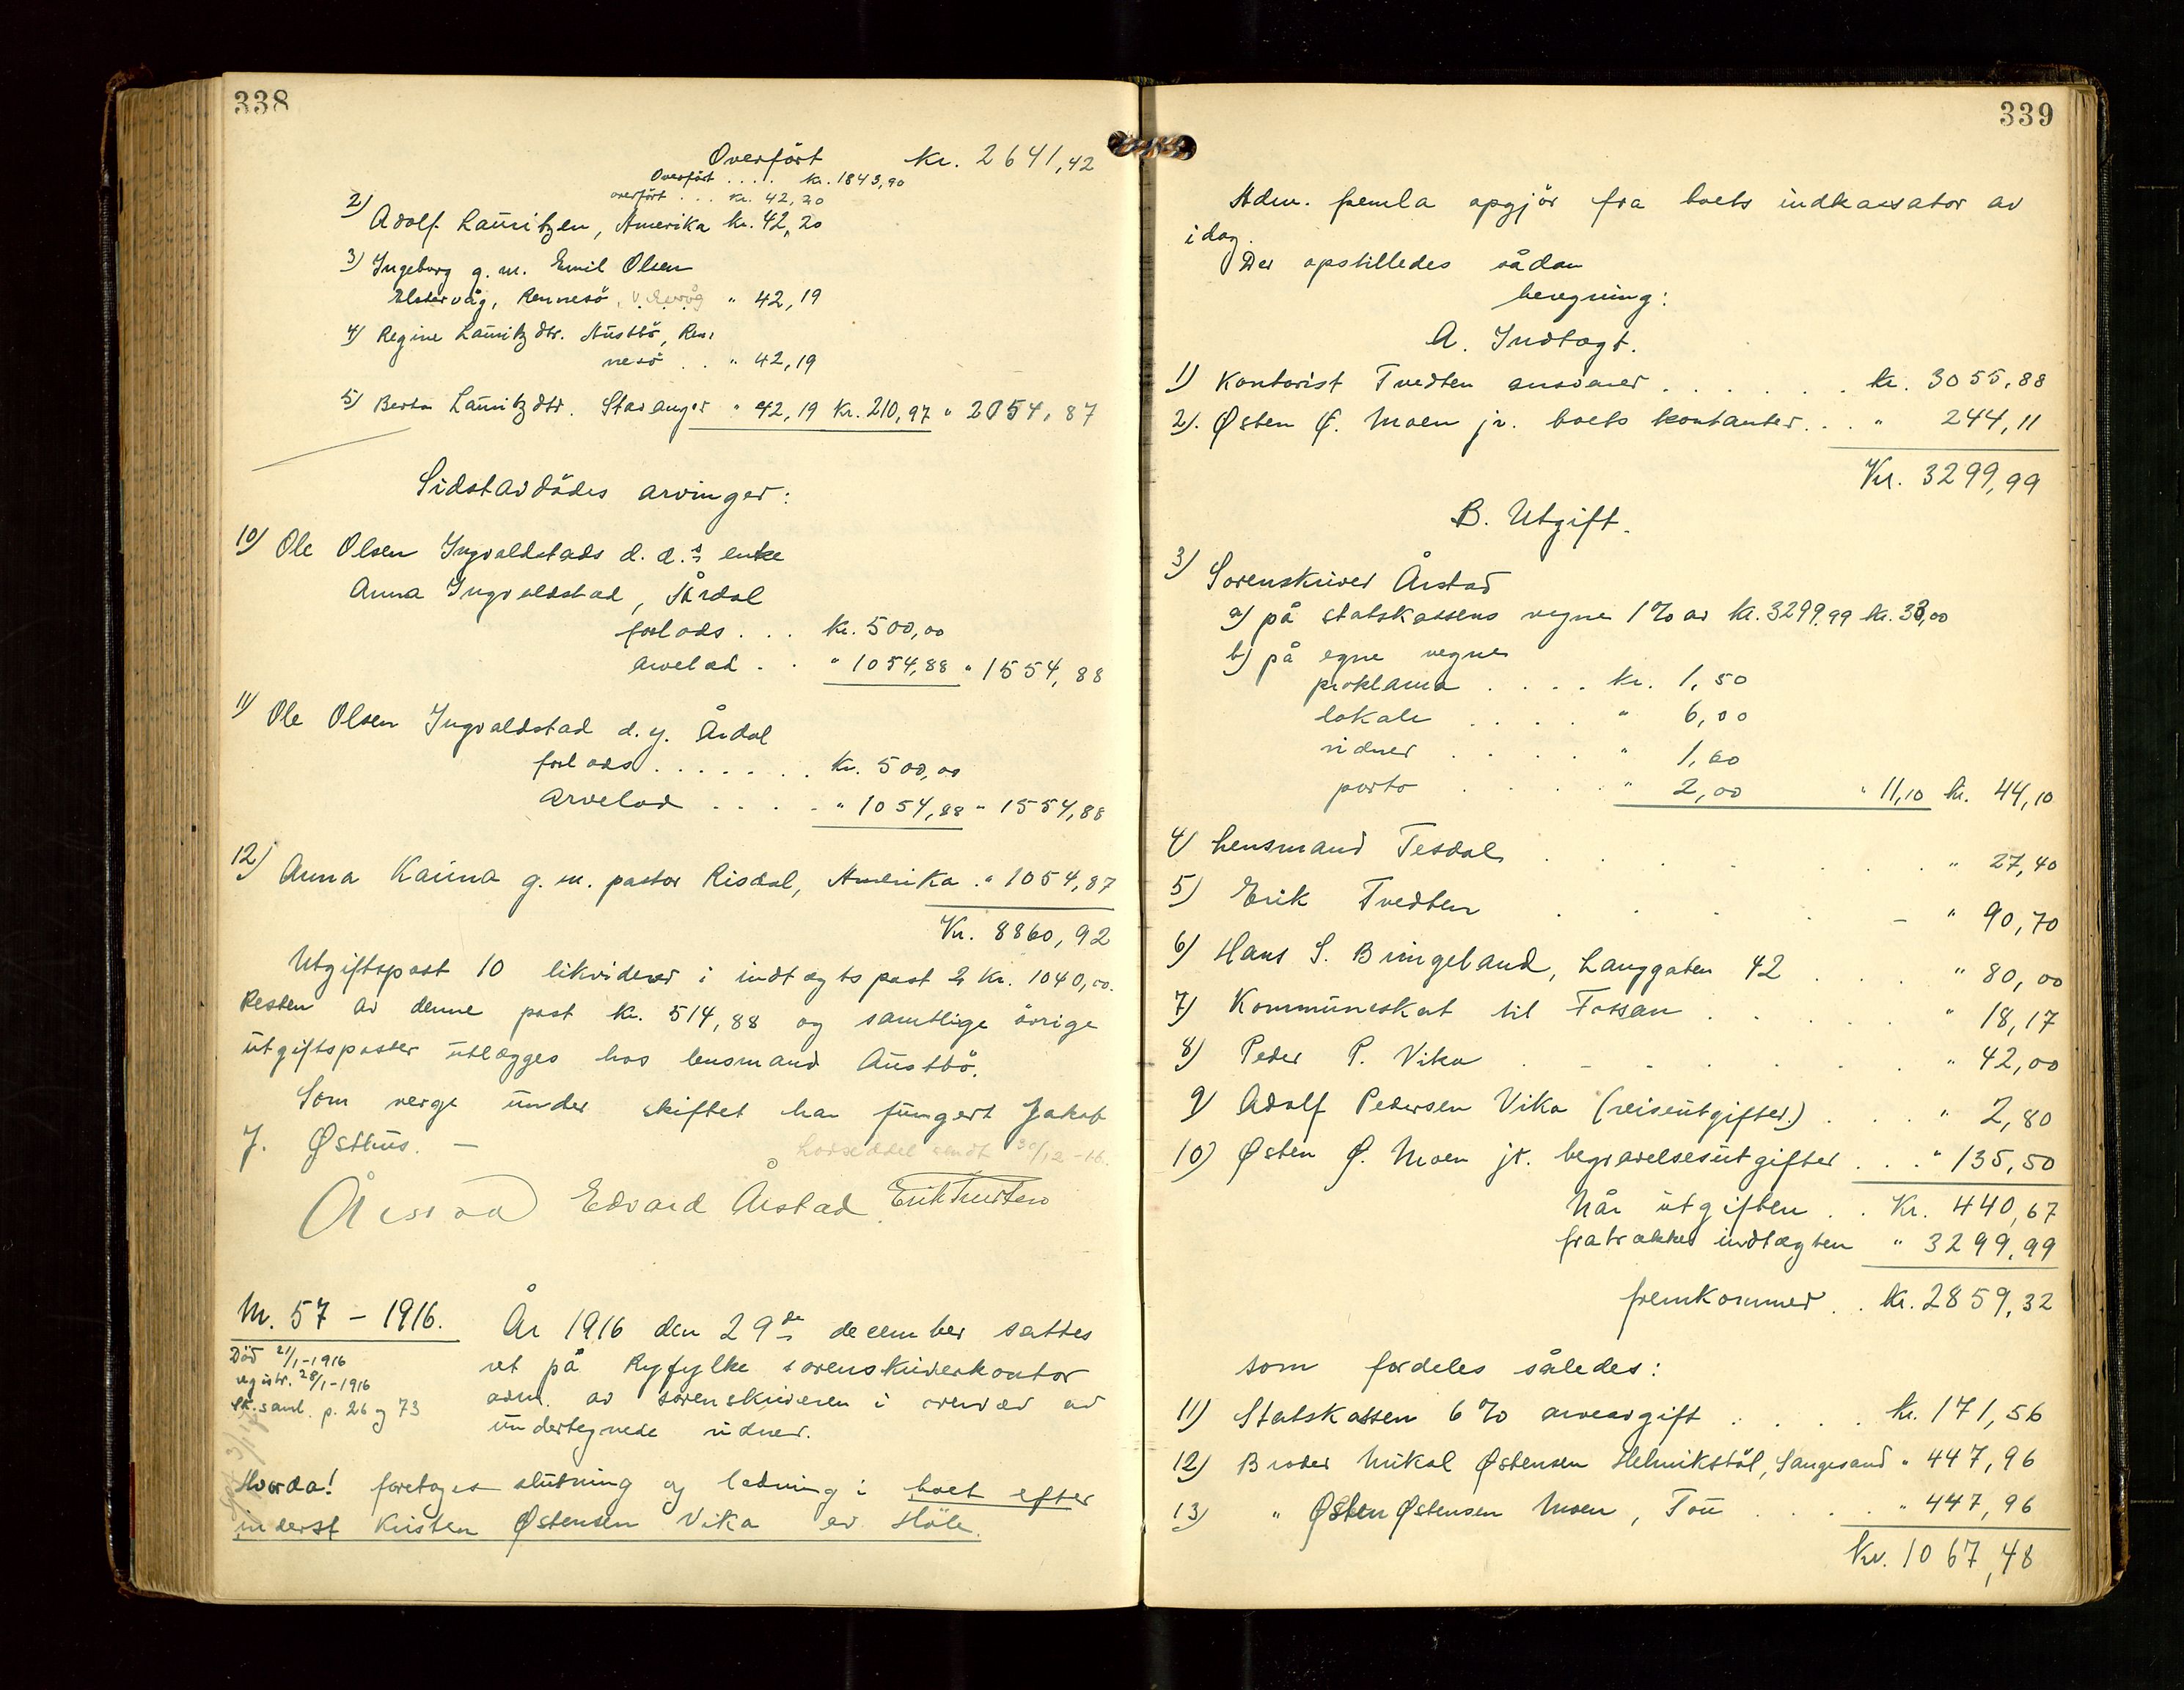 338
Overført kr. 2641,42
Overført .... kr. 1843,90
overført ... kr. 42,20
2) Adolf Lauritzen, Amerika kr. 42,20
3) Ingeborg g.m. Emil Olsen
Elstervåg, Rennesö, " 42,19
4) Regine Lauritzdtr. Austbö, Ren-
nesö . . " 42,19
5) Berta Lauritzdtr. Stavanger " 42,19 kr. 210,97 " 2054,87
Sidstavdödes arvinger:
10) Ole Olsen Ingvaldstads d. æ.s enke
Anna Ingvaldstad, Årdal
forlods ... kr. 500,00
arvelod .. " 1054,88 " 1554,88
11) Ole Olsen Ingvaldstad d.y. Årdal
forlods ....... kr. 500,00
arvelod .... " 1054,88 " 1554,88
12) Anna Karina g.m. pastor Risdal, Amerika . " 1054,87
Kr. 8860,92
Utgiftspost 10 likviderer i indtægtspost 2 kr. 1040,00.
Resten av denne post kr. 514,88 og samtlige övrige
utgiftsposter utlægges hos lensmand Austbö.
Som verge under skiftet har fungert Jakob
J. Østhus. —
Lodseddel sendt 30/12-16.
Årstad Edvard Årstad Erik Tvedten
Nr. 57 - 1916.
År 1916 den 29de december sattes
Död 21/1-1916
ret på Ryfylke sorenskriverkontor
registr. 28/1-1916
adm. av sorenskriveren i overvær av
sk.saml. p. 26 og 73
undertegnede vidner.
Hvorda! foretages slutning og lodning i boet efter
inderst Kristen Østensen Vika av Höle.
339
Adm. fremla opgjör fra boets indkassator av
idag.
Der opstilledes sådan
beregning:
A. Indtægt.
1) Kontorist Tvedten ansvarer ...... kr. 3055,88
2). Østen Ø. Moen jr. boets kontanter ... " 244,11
Kr. 3299,99
B. Utgift.
3) Sorenskriver Årstad
a) på statskassens vegne 1% av kr. 3299,99 kr. 33,00
b) på egne vegne
proklama .... kr. 1,50
lokale .... " 6,00
vidner .... " 1,60
porto .... " 2,00 " 11,10 kr. 44,10
4) Lensmand Tesdal ...... " 27,40
5) Erik Tvedten ..... " 90,70
6) Hans S. Bringeland, Langgaten 42 ... " 80,00
7) Kommuneskat til Fossan ..... " 18,17
8) Peder P. Vika ...... " 42,00
9) Adolf Pedersen Vika (reiseutgifter) ... " 2,80
10) Østen Ø. Moen jr. begravelsesutgifter ... " 135,50
Når utgiften .. Kr. 440,67
fratrækkes indtægten " 3299,99
fremkommer .. kr. 2859,32
som fordeles således:
11) Statskassen 6% arveavgift .... kr. 171,56
12) Broder Mikal Østensen Helmikstöl, Sangesand " 447,96
13) " Østen Østensen Moen, Tou .... " 447,96
Kr. 1067,48